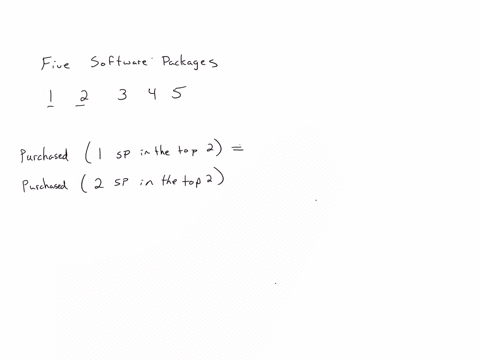 Five Software Packages
1 2 3 4 5
Purchased (1 SP in the top 2) =
Purchased (2 SP in the top 2)